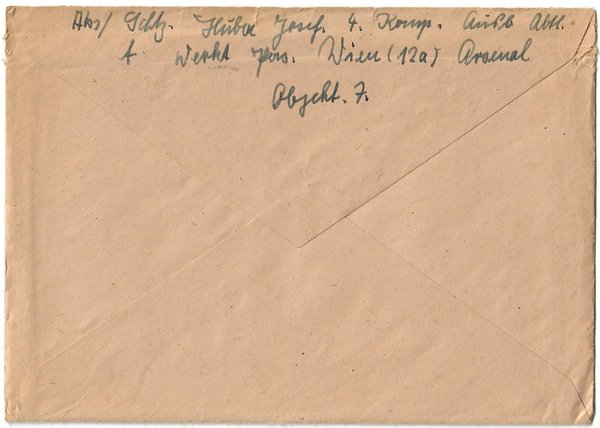 Abs/ Schtz. Huber Josef. 4. Komp. Ausb Abtl.
f. Werkst Pers. Wien (12a) Arsenal
Objekt. 7.